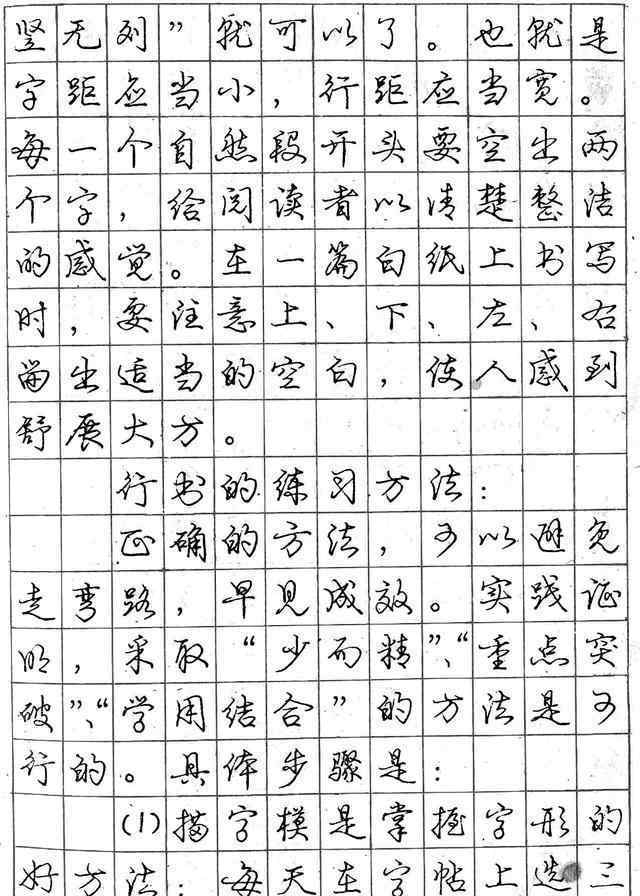 竖无列”就可以了。也就是
字距应当小，行距应当宽。
每一个自然段开头要空出两
个字，给阅读者以清楚整洁
的感觉。在一篇白纸上书写
时，要注意上、下、左、右
留出适当的空白，使人感到
舒展大方。
行书的练习方法：
正确的方法，可以避免
走弯路，早见成效。实践证
明，采取“少而精”、“重点突
破”、“学用结合”的方法是可
行的。具体步骤是：
(1)描字模是掌握字形的
好方法：每天在字帖上选三